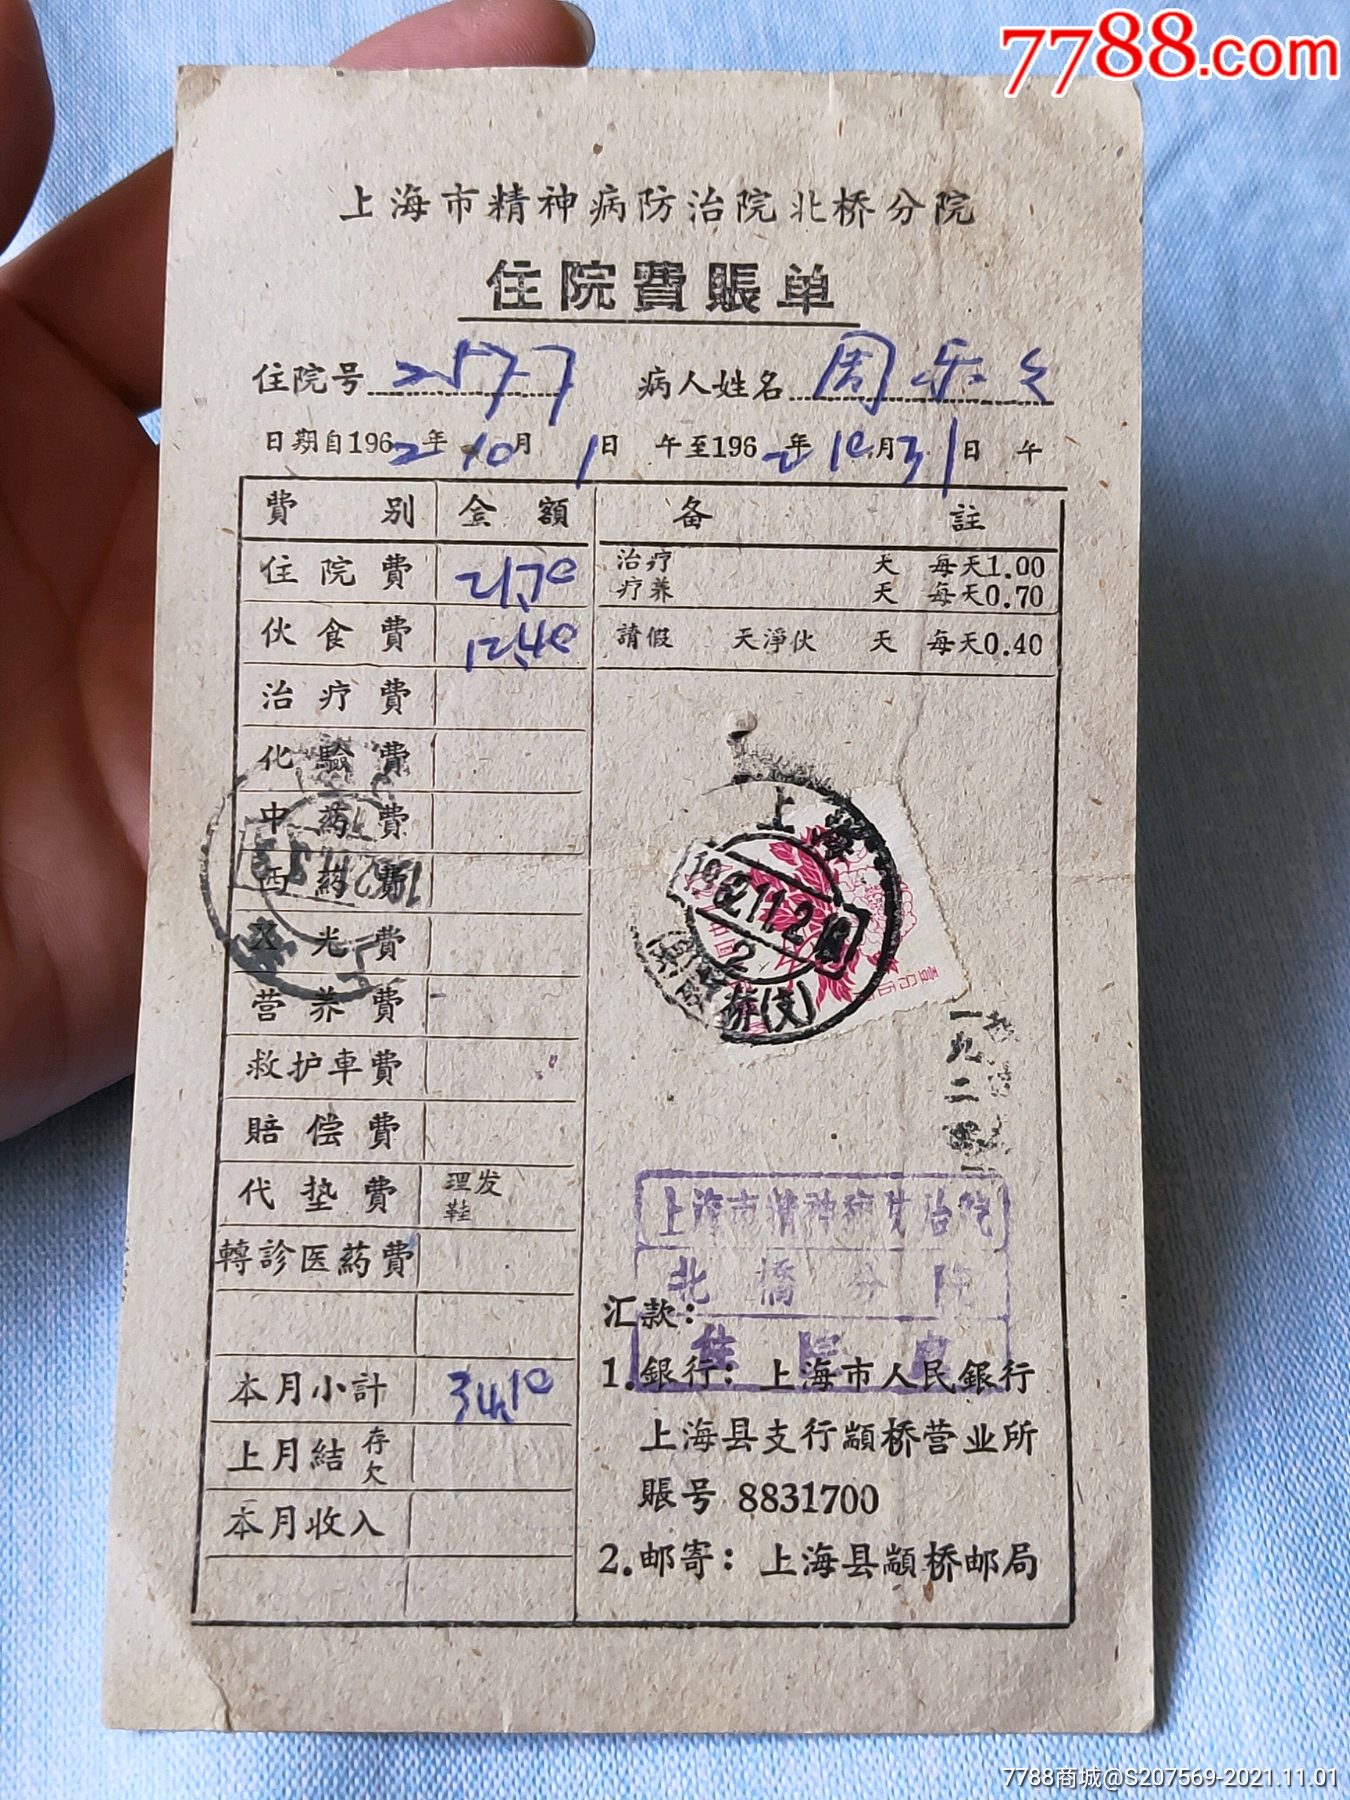 7788.com
上海市精神病防治院北桥分院
住院費賬单
住院号 2577 病人姓名 周乐
日期自1962年10月1日 午至1962年10月31日 午
費别 金額 备註
住院費 21.70 治疗 天 每天1.00
疗养 天 每天0.70
伙食費 12.40 請假 天淨伙 天 每天0.40
治疗費
化驗費
中药費
西药費
X光費
营养費
救护車費
賠偿費
代垫費 理发
鞋
轉診医药費
本月小計 34.10
上月結 存
欠
本月收入
上海
1962.11.2
2
桥(支)
上海市精神病防治院
北橋分院
汇款：
1.銀行：上海市人民銀行
上海县支行顓桥营业所
賬号 8831700
2.邮寄：上海县顓桥邮局
7788商城@S207569-2021.11.01